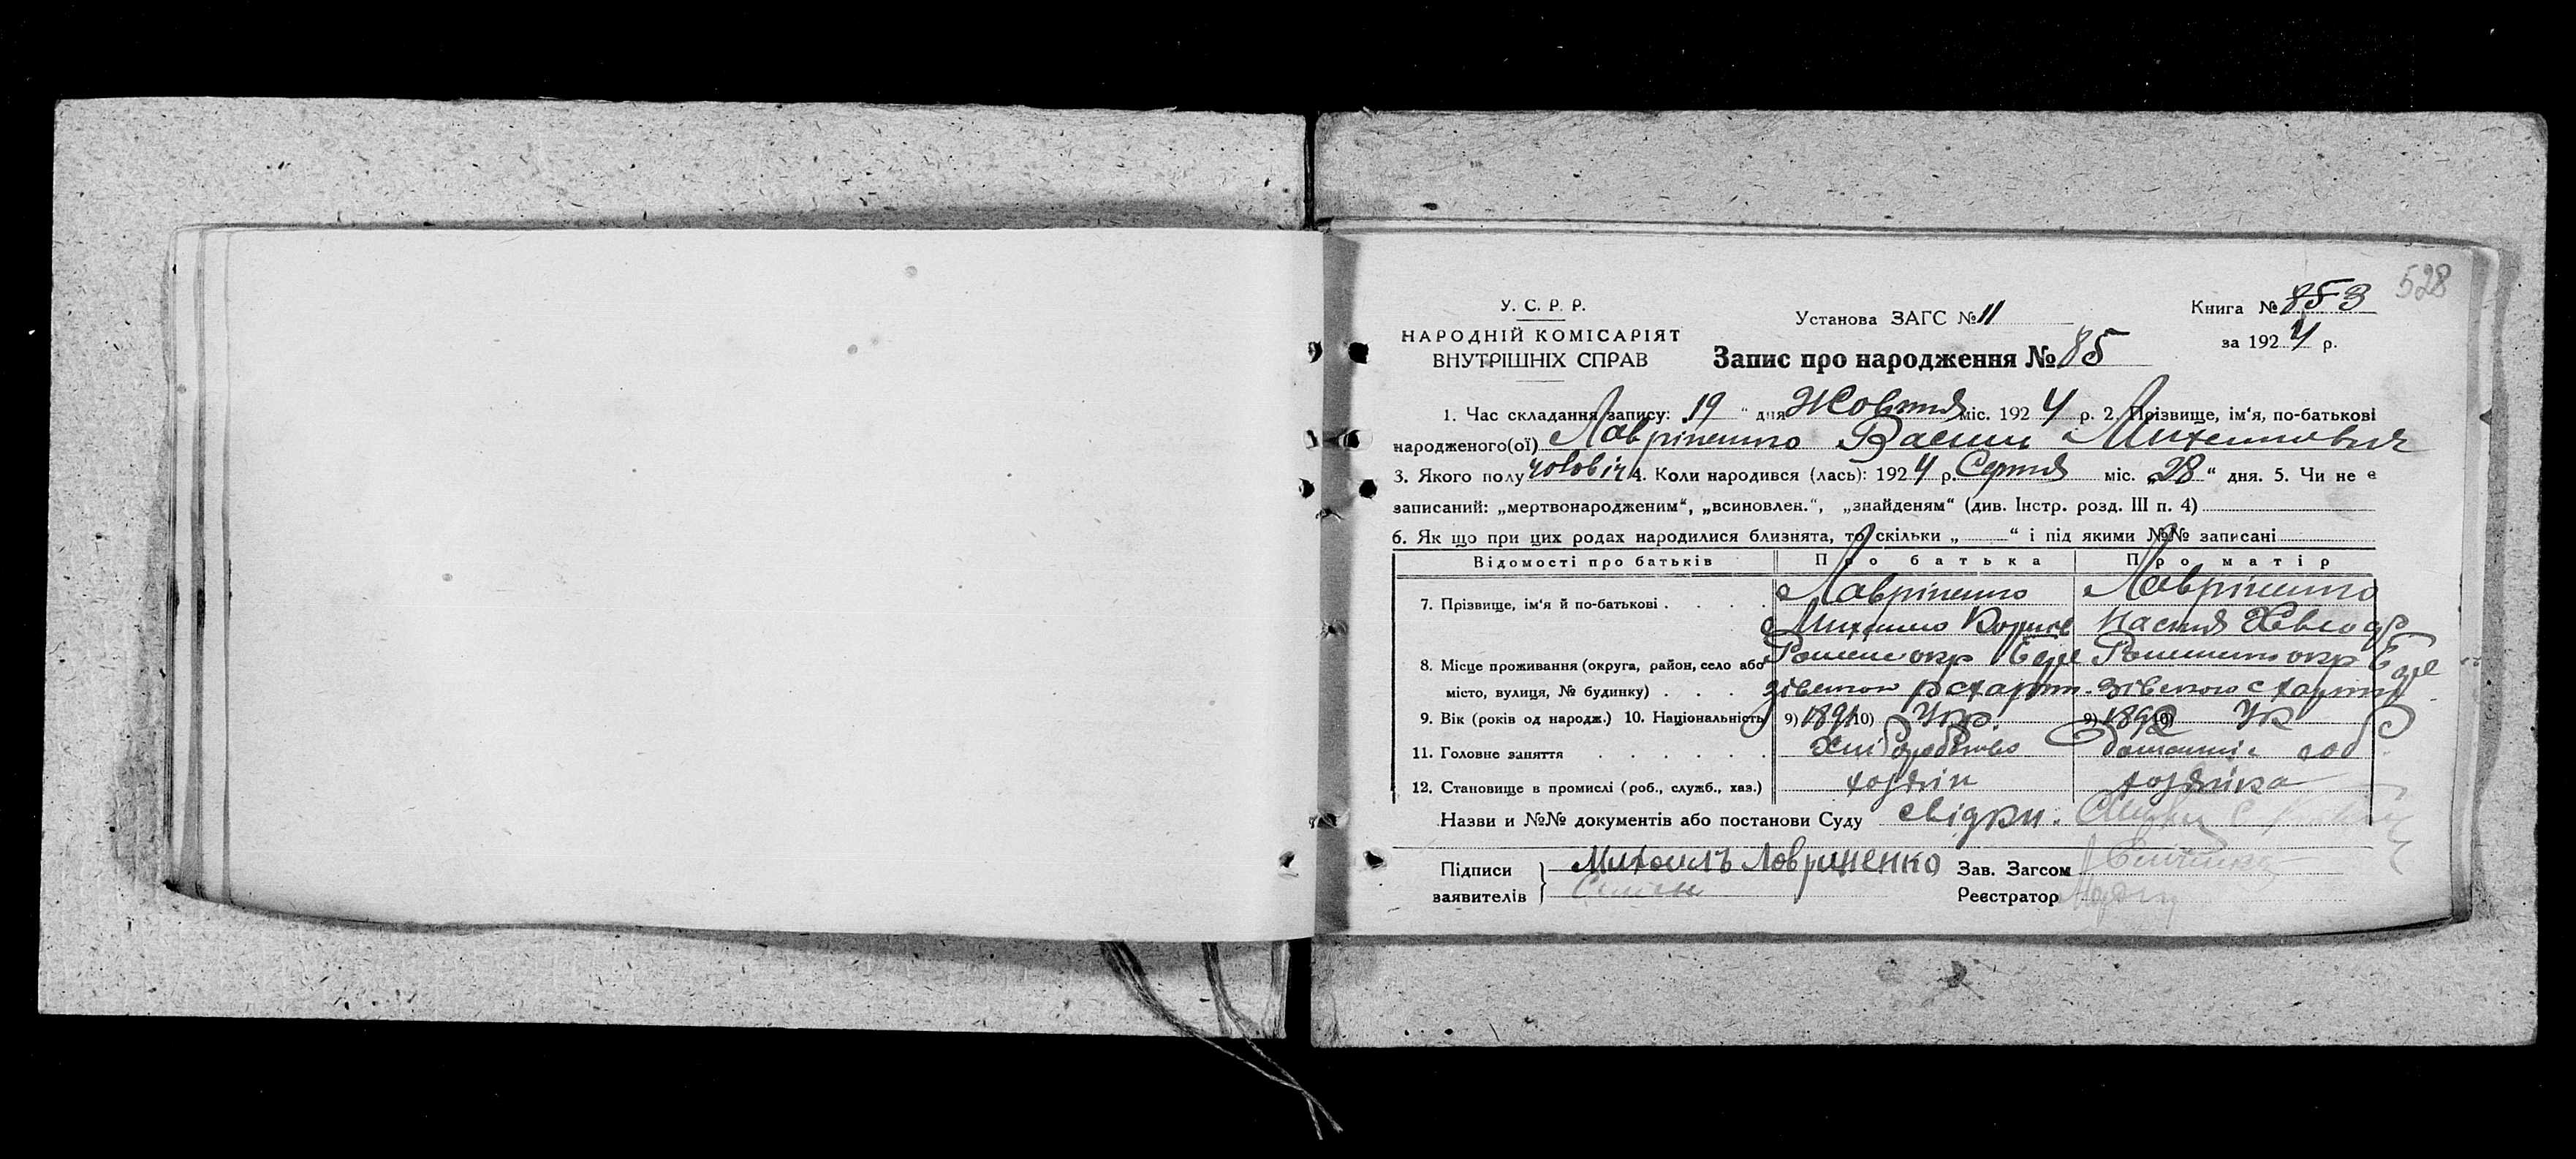 528
У. С. Р. Р.
НАРОДНІЙ КОМІСАРІЯТ
ВНУТРІШНІХ СПРАВ
Установа ЗАГС № 11
Запис про народження № 85
Книга № 853
за 1924 р.
1. Час складання запису: 19 " дня Жовтня міс. 1924 р. 2. Прізвище, ім'я, по-батькові
народженого(ої) Лавріненко Василь Михайлович
3. Якого полу чоловіч 4. Коли народився (лась): 1924 р. Серпня міс. „28“ дня. 5. Чи не є
записаний: „мертвонародженим“, „всиновлен.“, „знайденям“ (див. Інстр. розд. III п. 4)
6. Як що при цих родах народилися близнята, то скільки „ “ і під якими №№ записані
Відомості про батьків Про батька Про матір
7. Прізвище, ім'я й по-батькові . . . . Лавріненко Лавріненко
Михайло
8. Місце проживання (округа, район, село або Роменс окр Роменської окр
місто, вулиця, № будинку) . . .
9. Вік (років од народж.) 10. Національність 9) 1891 10) Укр. 9) 1892 10) Ук
11. Головне заняття . . . . . . Хліборобство домашнє роб
12. Становище в промислі (роб., служб., хаз.) хозяін хозяйка
Назви и №№ документів або постанови Суду свідки.
Підписи заявителів Михаилъ Лавриненко Зав. Загсом
Реєстратор